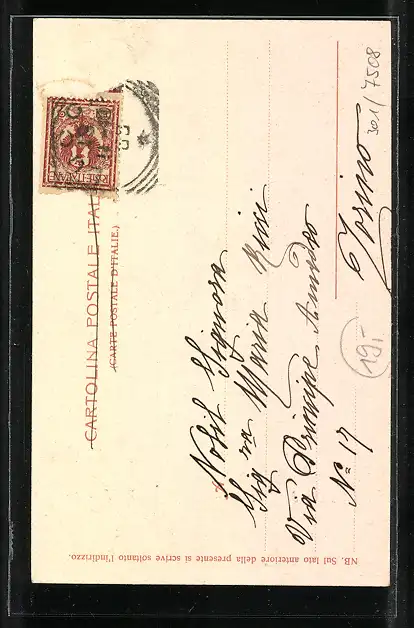 CARTOLINA POSTALE ITAL
(CARTE POSTALE D'ITALIE.)
Nobil Signora
Sig.ra Maria Ricci
Via Principe Amedeo
No 17
Torino
NB. Sul lato anteriore della presente si scrive soltanto l'indirizzo.
301/7508
19.-